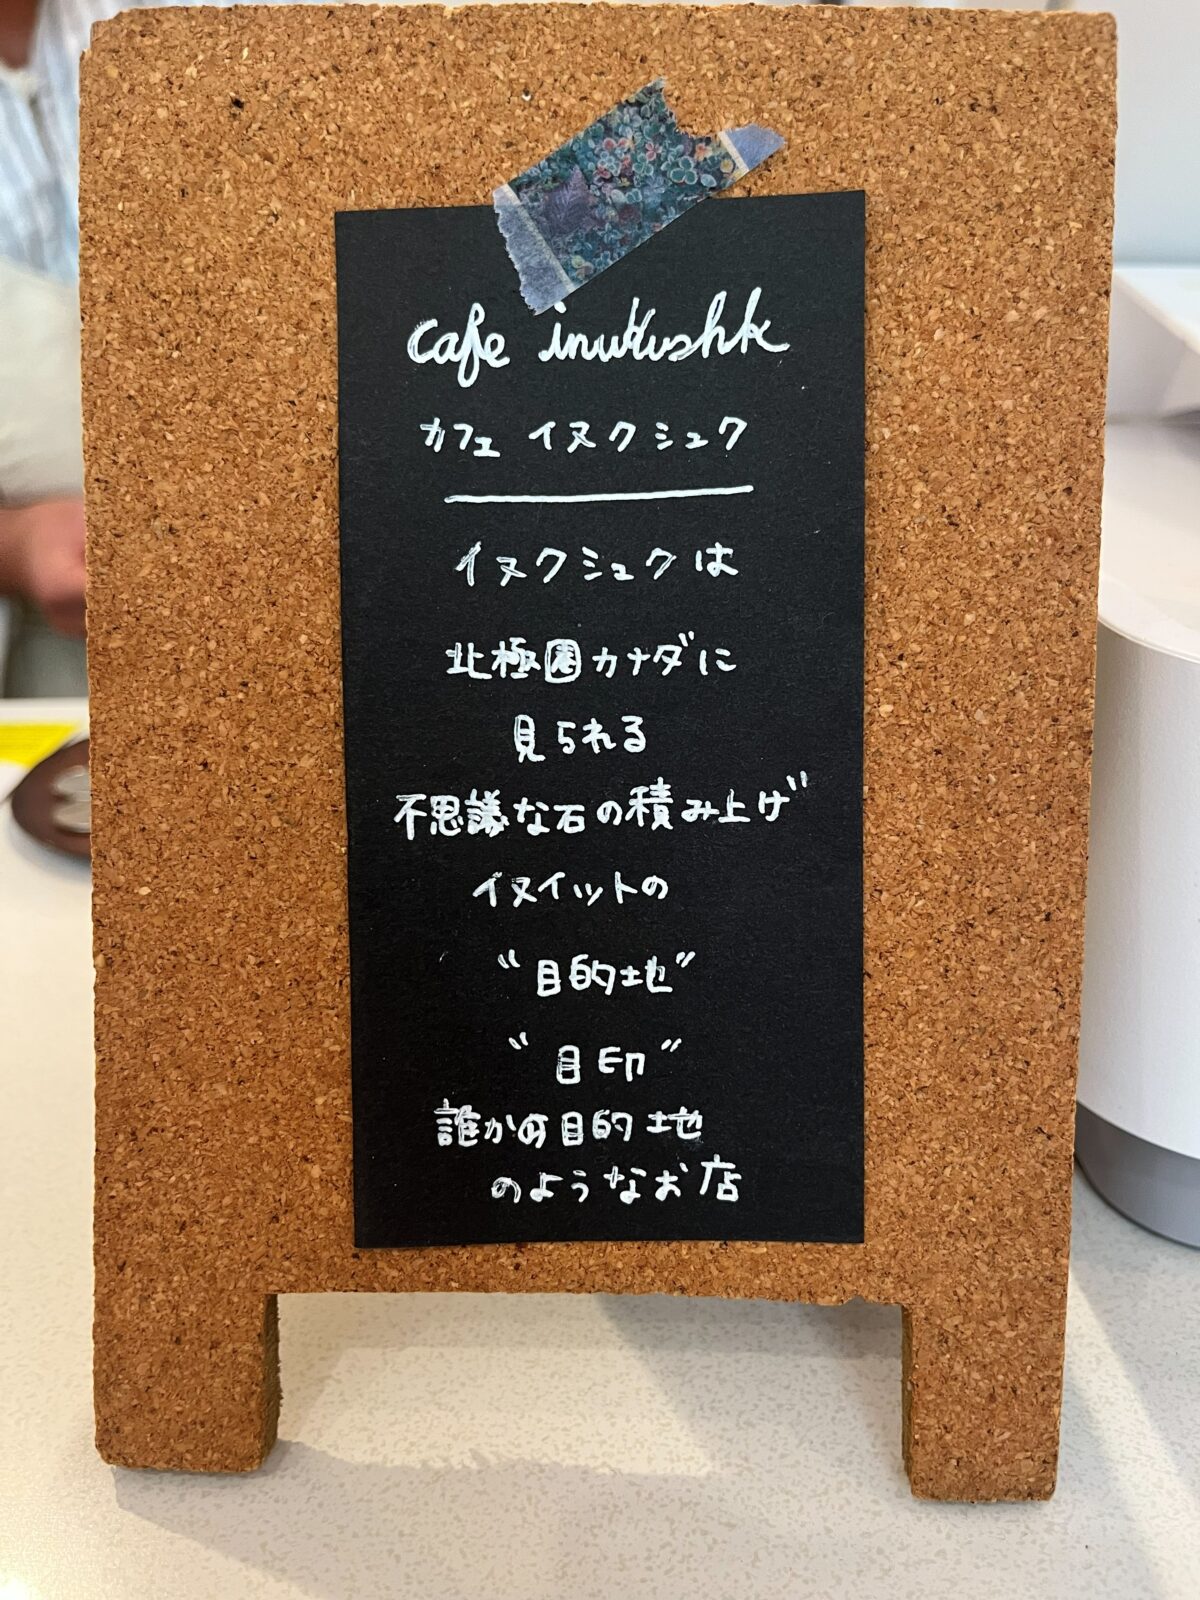 cafe inukushk
カフェ イヌクシュク
イヌクシュクは
北極圏カナダに
見られる
不思議な石の積み上げ
イヌイットの
“目的地”
“目印”
誰かの目的地
のようなお店